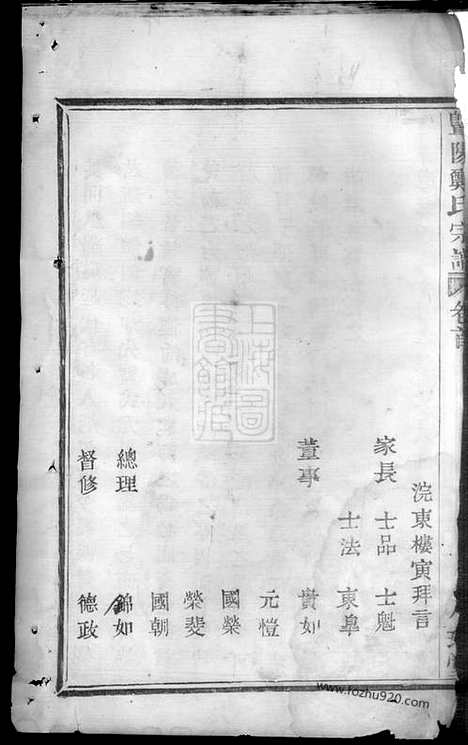 暨陽鄭氏宗譜 卷首
浣東樓寅拜言
家長 士品 士魁
士法 東皐
董事 貴如
元愷
國榮
榮斐
國朝
總理 錦如
督修 德政
上海圖書館藏
www.fozhu920.com